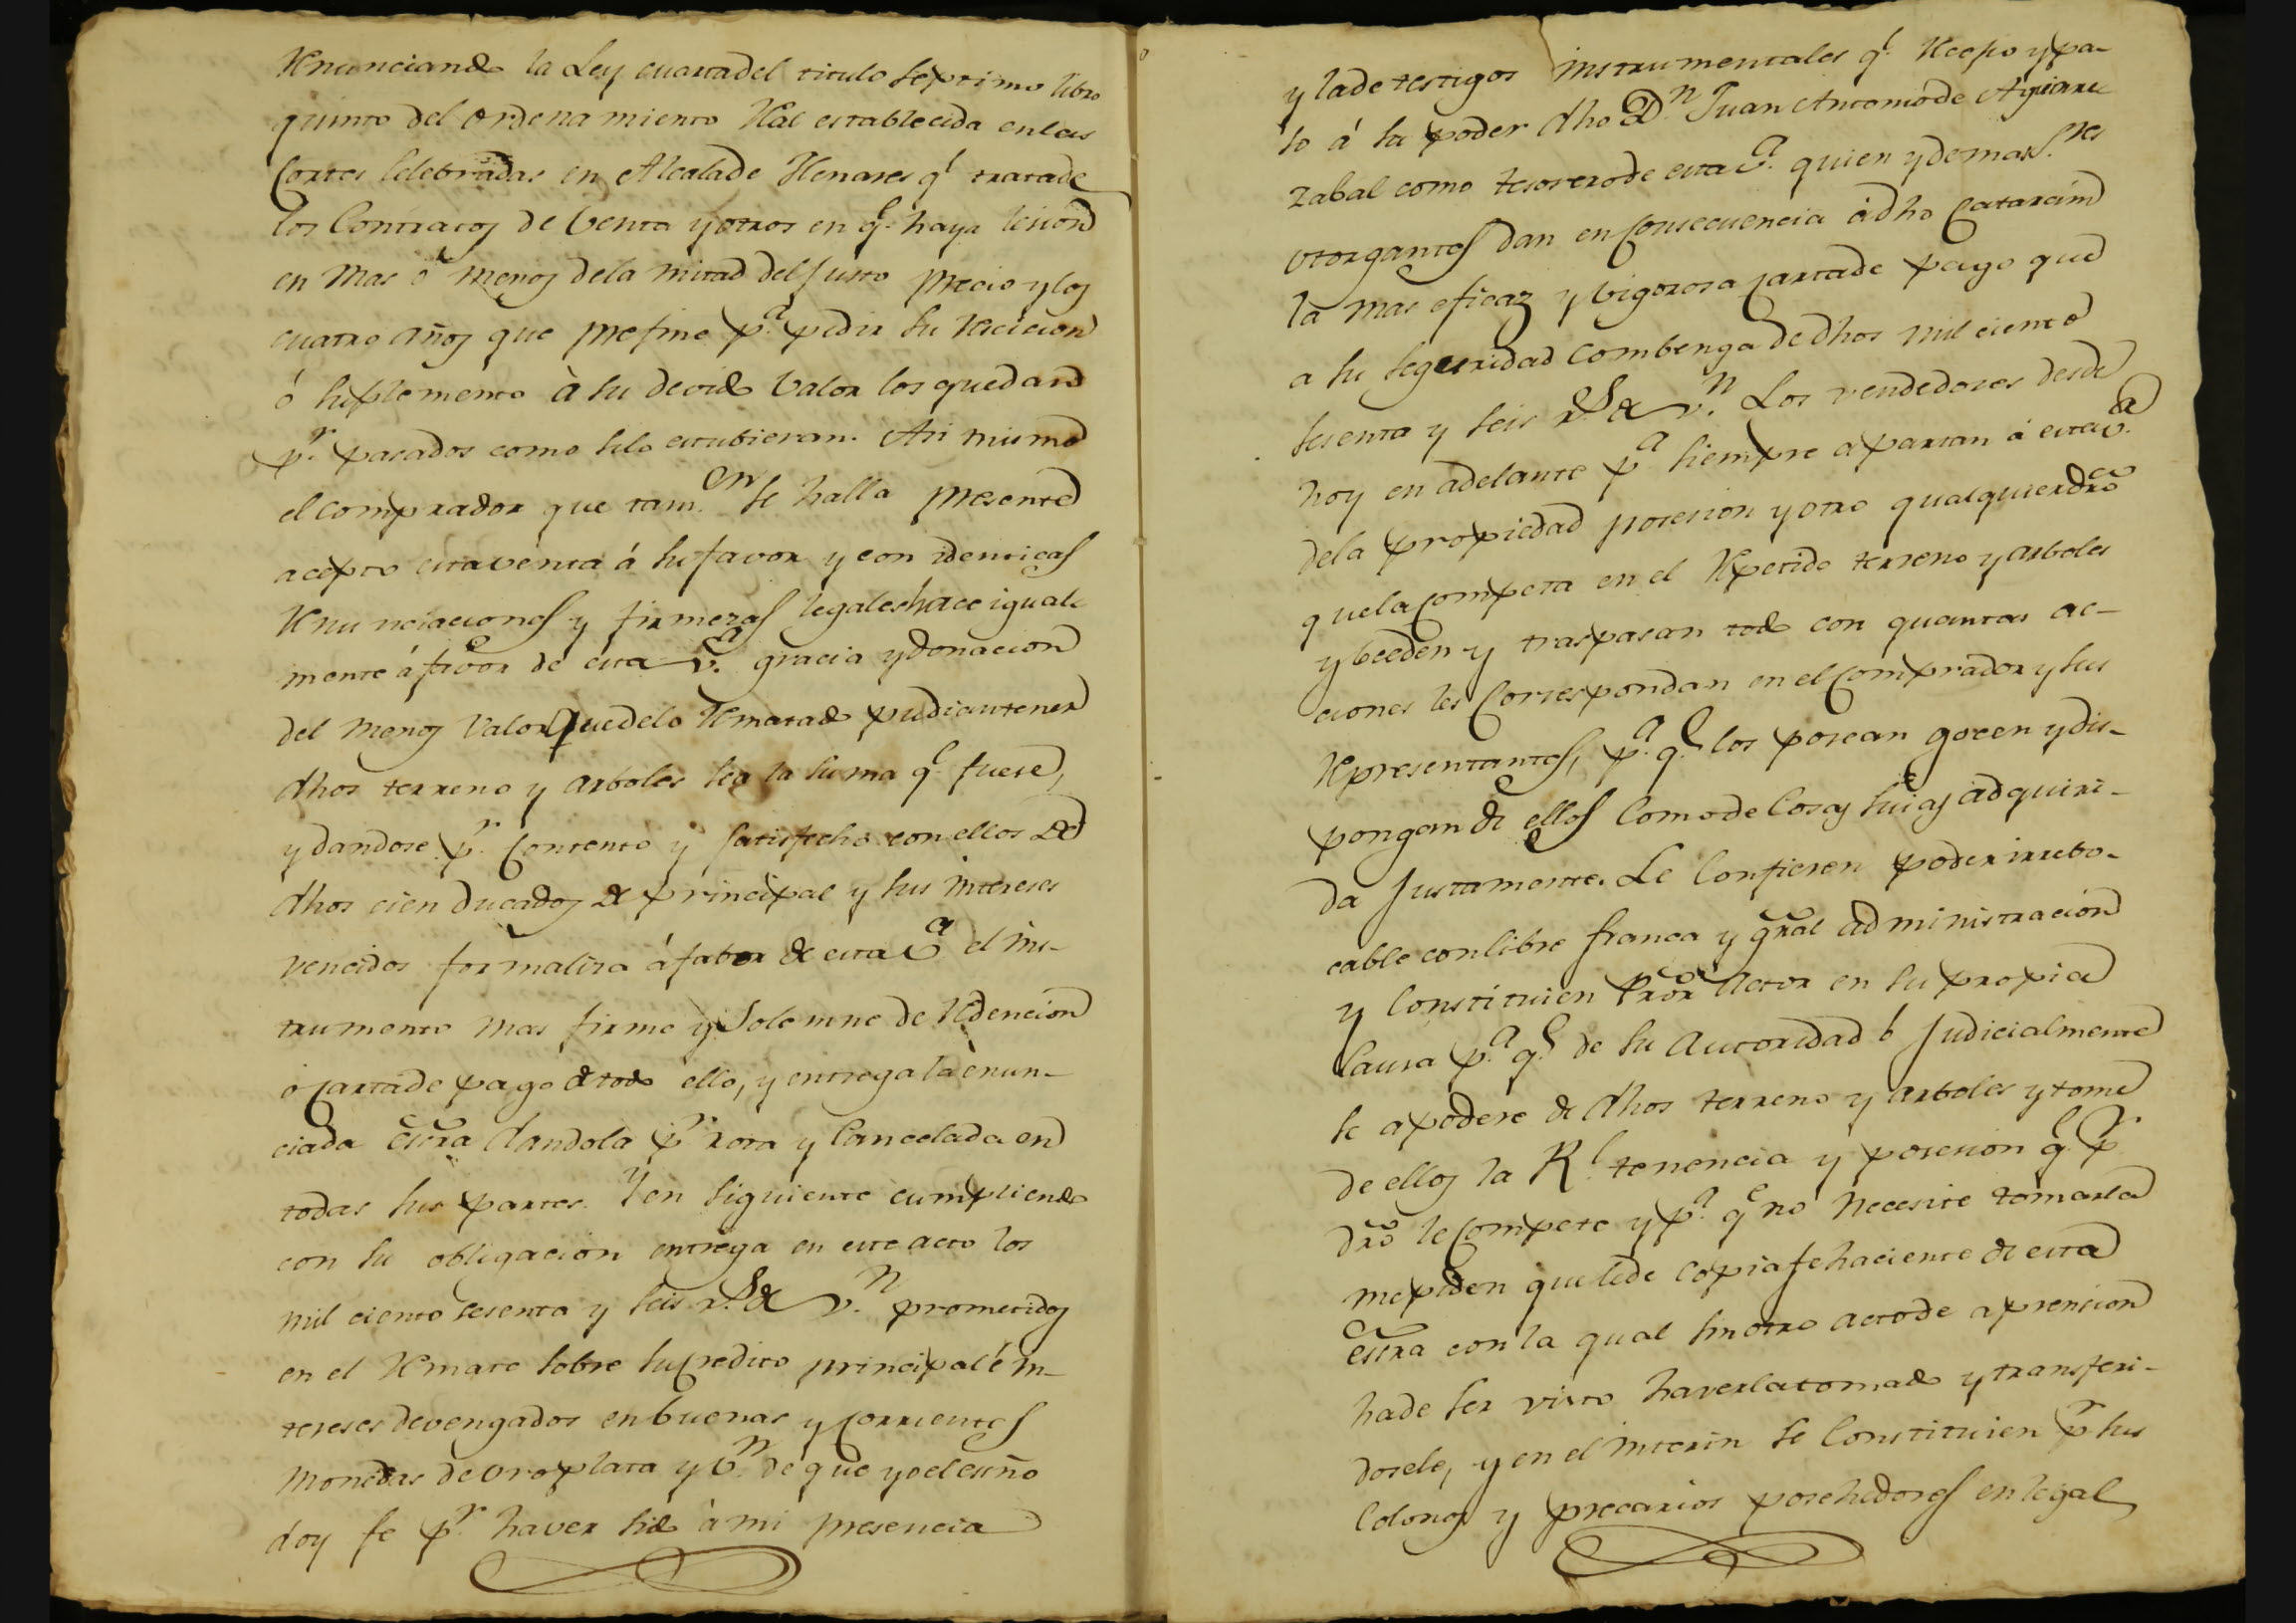 Renunciando la Ley cuarta del titulo septimo libro
quinto del ordenamiento Real establecida en las
Cortes Celebradas en Alcala de Henares qe. trata de
los Contratos de Venta y otros en qe. haya lesion
en Mas ó menos dela mitad del Justo precio y los
cuatro años que prefine pa. pedir su Recicion
ó suplemento à su devido Valor los que dan
pr. pasados como si lo estubieran. Asi mismo
el comprador que tamen. se halla presente
acepto esta venta á su favor y con identicas
Renunciaciones y firmezas legales hace igual-
mente á favor de esta va. gracia y donacion
del menos Valor que de lo Rematado pudian tener
dhos terreno y arboles sea la suma qe. fuese,
y dandose pr. Contento y satisfecho con ellos de
dhos cien ducados de principal y sus intereses
vencidos formaliza á fabor de esta Va. el ins-
trumento mas firme y Solemne de Redencion
ó carta de pago de todo ello, y entrega la enun-
ciada escra dandola pr. rota y Cancelada en
todas sus partes. Y en siguiente cumpliendo
con su obligacion entrega en este acto los
mil ciento sesenta y seis rs. de vn. prometidos
en el Remate sobre su credito principal é in-
tereses devengados en buenas y corrientes
Monedas de oro plata y Vn. de que yo el esno
doy fe pr. haver sido à mi presencia
y la de testigos instrumentales qe. Recivio y pa-
so á su poder dho Dn. Juan Antonio de Aguirre
zabal como tesorero de esta Va. quien y demas Sres
otorgantes dan en consecuencia à dho Catarain
la mas eficaz y vigorosa carta de pago que
a su seguridad combenga de dhos mil ciento
sesenta y seis rs. de vn. Los vendedores desde
hoy en adelante pa. siempre apartan á esta va.
de la propiedad posesion y otro qualquier dro
que la competa en el Repetido terreno y arboles
y le ceden y traspasan todo con quantas ac-
ciones les Correspondan en el comprador y sus
Representantes, pa. qe. los posean gocen y dis-
pongan de ellos Como de Cosas suias adquiri-
da Justamente. Le Confieren poder irrebo-
cable con libre franca y gral administracion
y Constituien Pror actor en su propia
Causa pa. qe. de su Autoridad ó Judicialmente
se apodere de dhos terreno y arboles y tome
de ellos la Rl. tenencia y posesion qe. pr.
dro le compete y pa. qe no necesite tomarla
me piden que le de copia fehaciente de esta
escra con la qual sin otro acto de aprension
ha de ser visto haverla tomado y transferi-
dosele, y en el interin se Constituien pr. sus
Colonos y precarios posehedores en legal